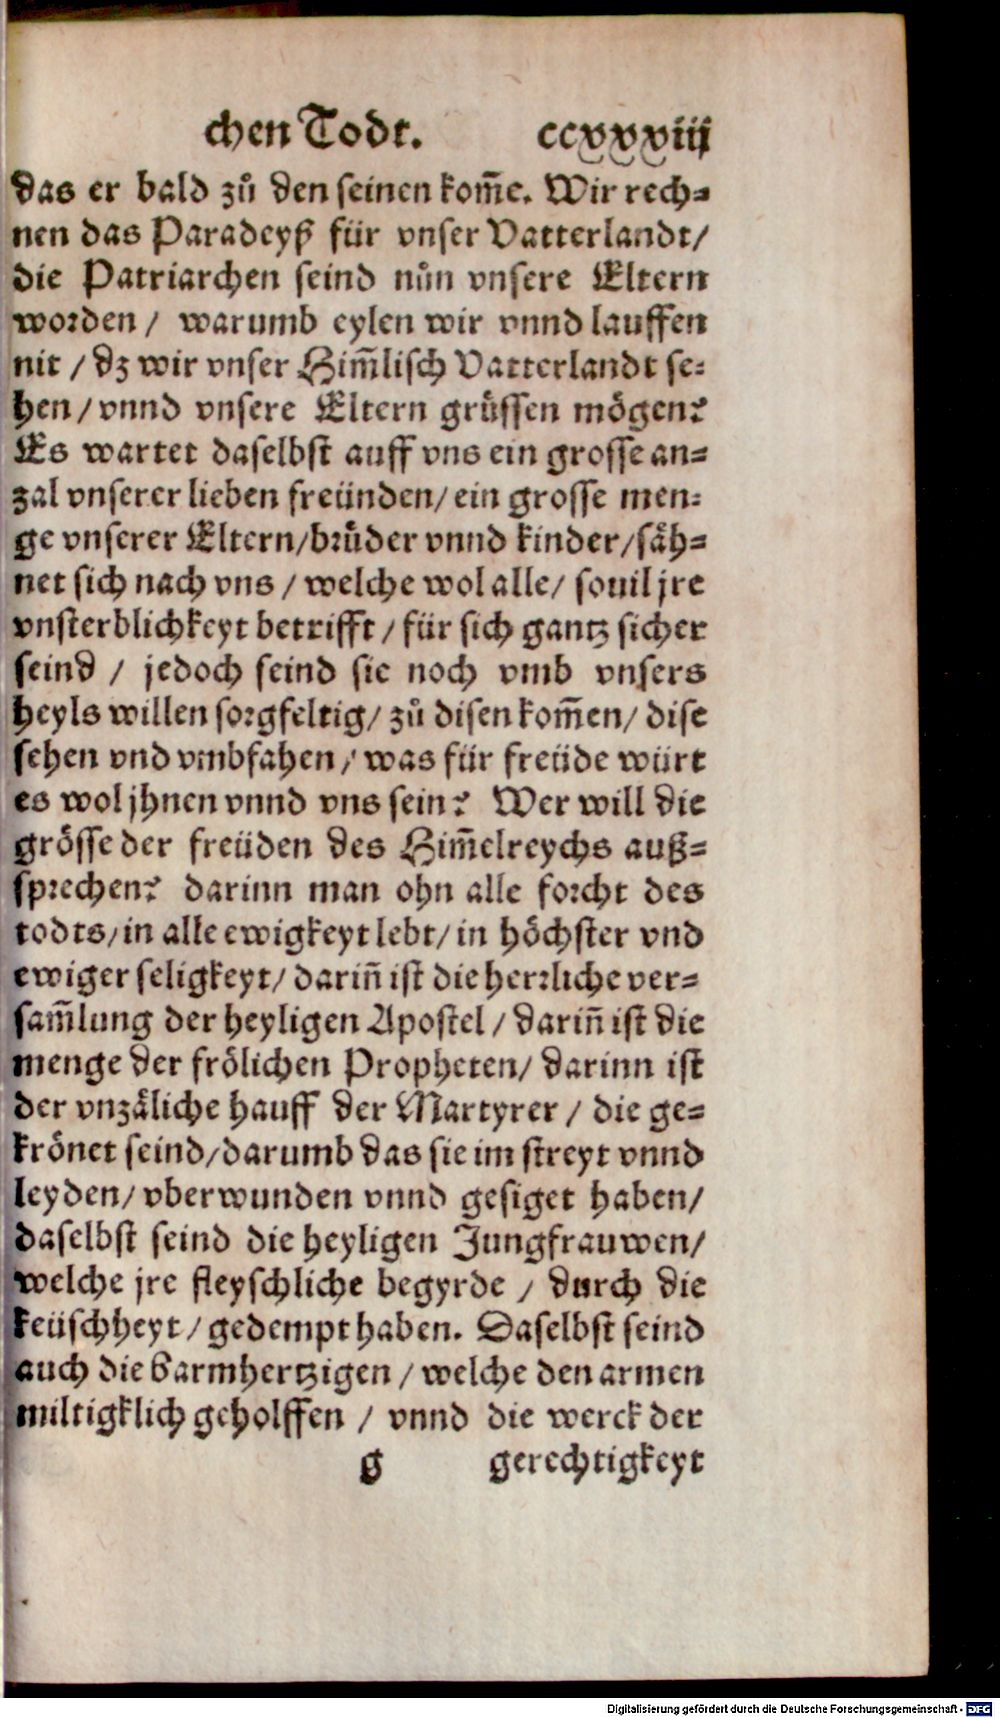 chen Todt. ccxxxiij
das er bald zů den seinen kom̃e. Wir rech=
nen das Paradeyß für vnser Vatterlandt/
die Patriarchen seind nůn vnsere Eltern
worden / warumb eylen wir vnnd lauffen
nit / dz wir vnser Him̃lisch Vatterlandt se=
hen / vnnd vnsere Eltern grůssen mögen?
Es wartet daselbst auff vns ein grosse an=
zal vnserer lieben freünden / ein grosse men=
ge vnserer Eltern / brůder vnnd kinder / säh=
net sich nach vns / welche wol alle / souil jre
vnsterblichkeyt betrifft / für sich gantz sicher
seind / jedoch seind sie noch vmb vnsers
heyls willen sorgfeltig / zů disen kom̃en / dise
sehen vnd vmbfahen / was für freüde würt
es wol jhnen vnnd vns sein? Wer will die
grösse der freüden des Him̃elreychs auß=
sprechen? darinn man ohn alle forcht des
todts / in alle ewigkeyt lebt / in höchster vnd
ewiger seligkeyt / dariñ ist die herrliche ver=
sam̃lung der heyligen Apostel / dariñ ist die
menge der frölichen Propheten / darinn ist
der vnzäliche hauff der Martyrer / die ge=
krönet seind / darumb das sie im streyt vnnd
leyden / vberwunden vnnd gesiget haben /
daselbst seind die heyligen Jungfrauwen /
welche jre fleyschliche begyrde / durch die
keüschheyt / gedempt haben. Daselbst seind
auch die Barmhertzigen / welche den armen
miltigklich geholffen / vnnd die werck der
g gerechtigkeyt
Digitalisierung gefördert durch die Deutsche Forschungsgemeinschaft - DFG